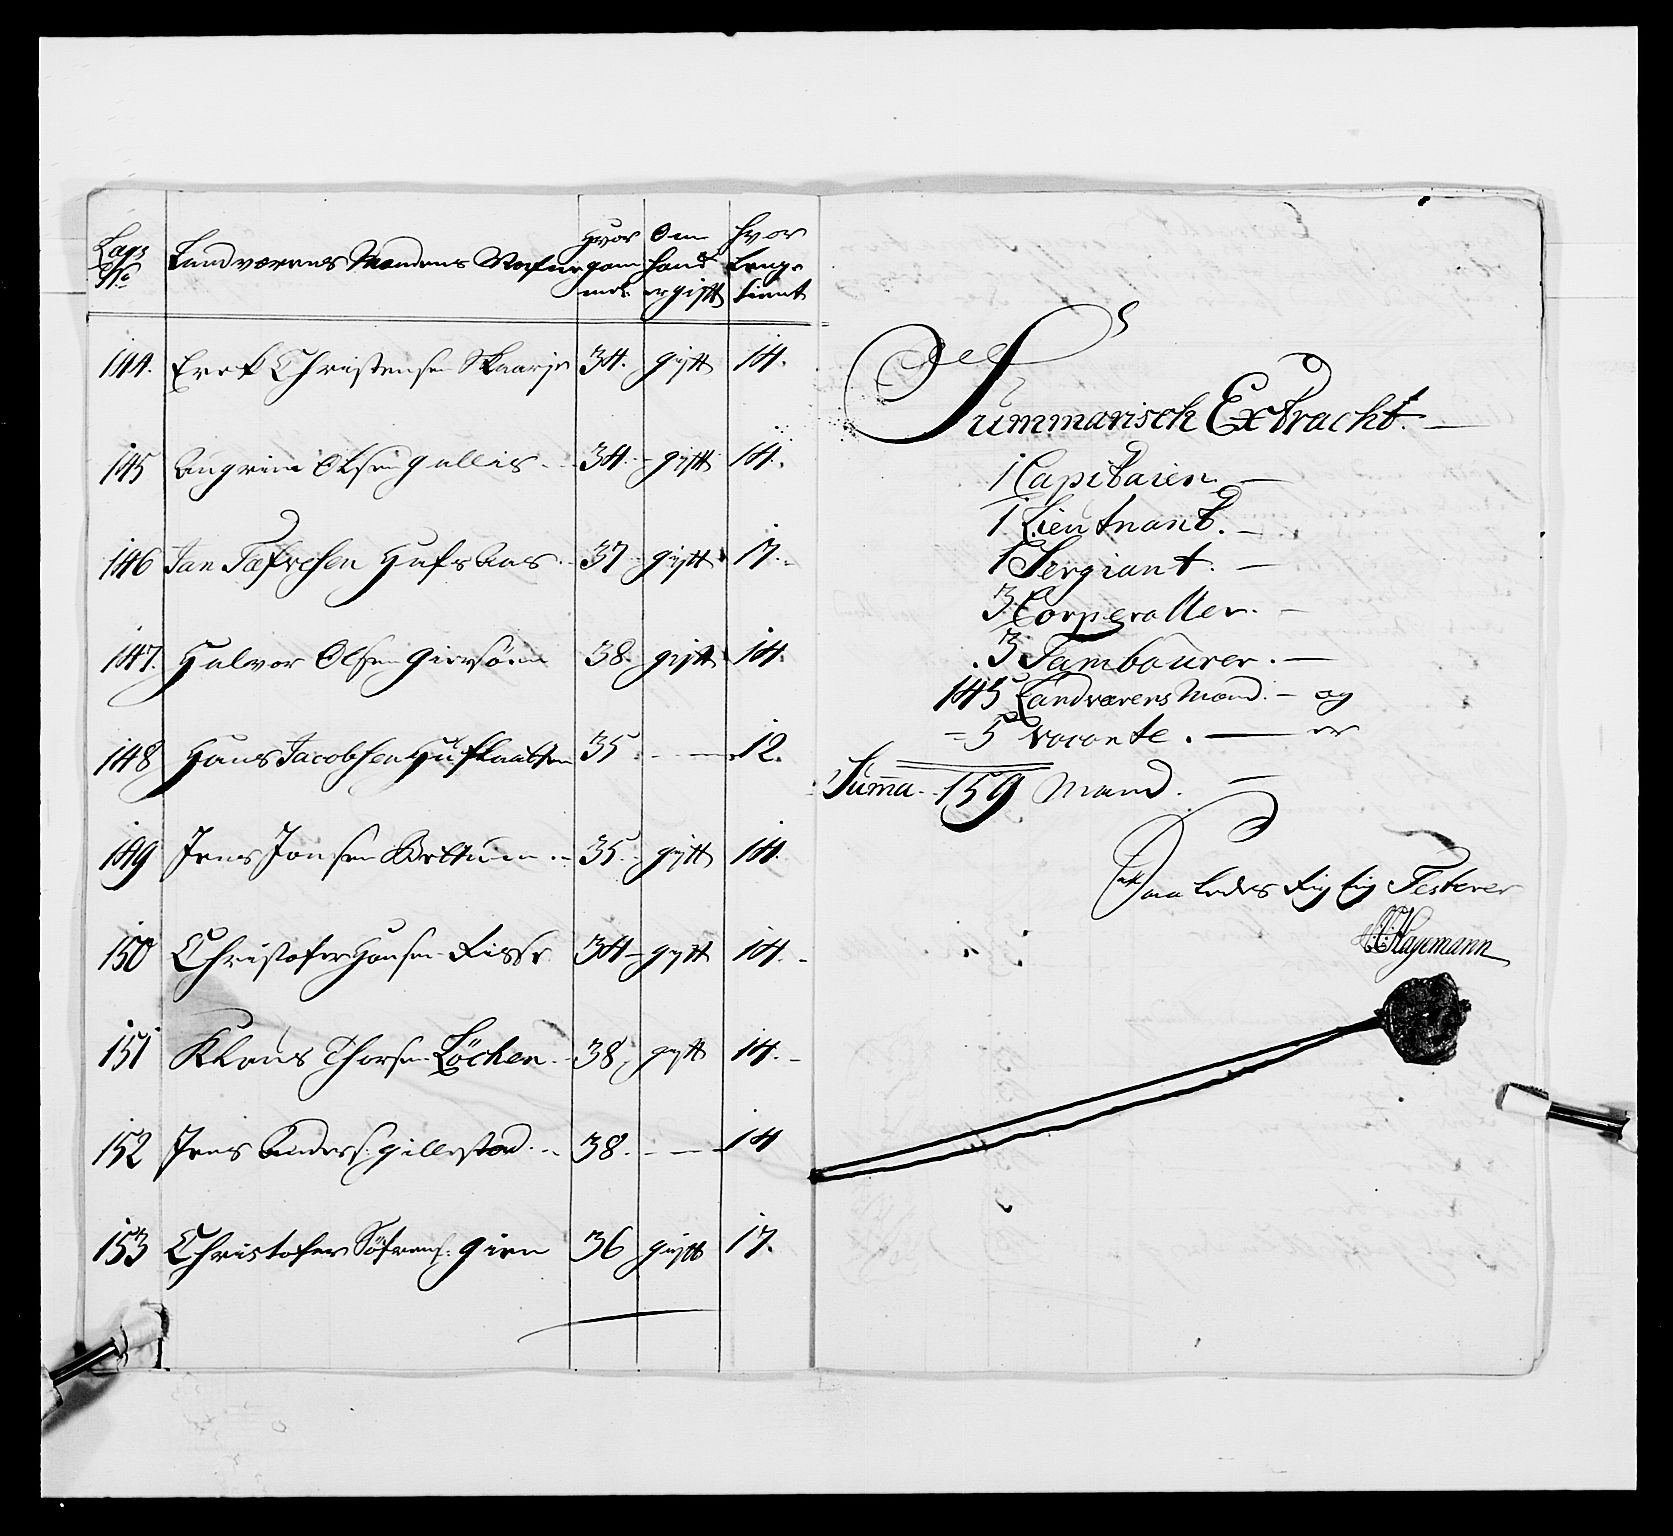 Lags No
Landværens Mandens Nafne
Hvor gam mel
Om hand er gift
Hvor lenge tient
144. Erek Christensen Skaarje 34. gift 14.
145 Angrim Olsen gullis 34. gift 14.
146 Jan Tæfresen 37 gift 17.
147. Halvor Olsen 38. gift 14.
148 Hans Jacobsen 35. 12.
149 Jens Jonsen Brettum 35. gift 14.
150 Christofer Hansen Risse 34 gift 14.
151 Klaus Thorsen Löchen 38. gift 14.
152 Jens Anders: gillestad 38. 14
153 Christofer Söfrens: gien 36 gift 17.
Summarisch Extracht.
1 Capitaien.
1 Lieutnant.
1 Sergiant.
3 Corperaller.
3 Tambourer.
145 Landværens Mænd. og
5 vacante. er
Summa 159 Mand.
Saaledes Rigtig Testerer
Hagemann